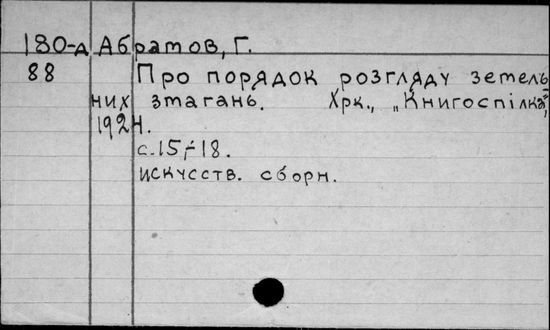 180-д Абратов, Г.
88 Про порядок розгляду земель
них змагань. Хрк., „Книгоспілка",
1924.
с.15÷18.
искусств. сборн.